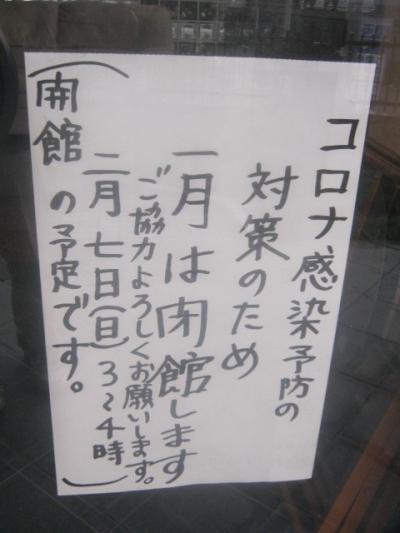 コロナ感染予防の
対策のため
一月は閉館します
ご協力よろしくお願いします。
二月七日(日)3~4時
(開館の予定です。)